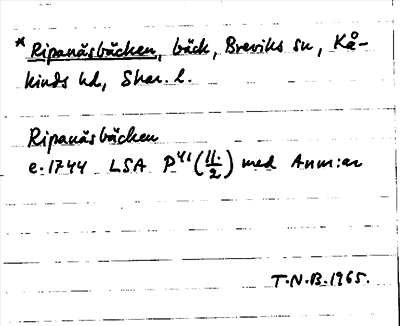 * Ripanäsbäcken, bäck, Breviks sn, Kå-
kinds hd, Skar. l.
Ripanäsbäcken
e. 1744 LSA P41 (11/2) med Anm:ar
T.N.B. 1965.